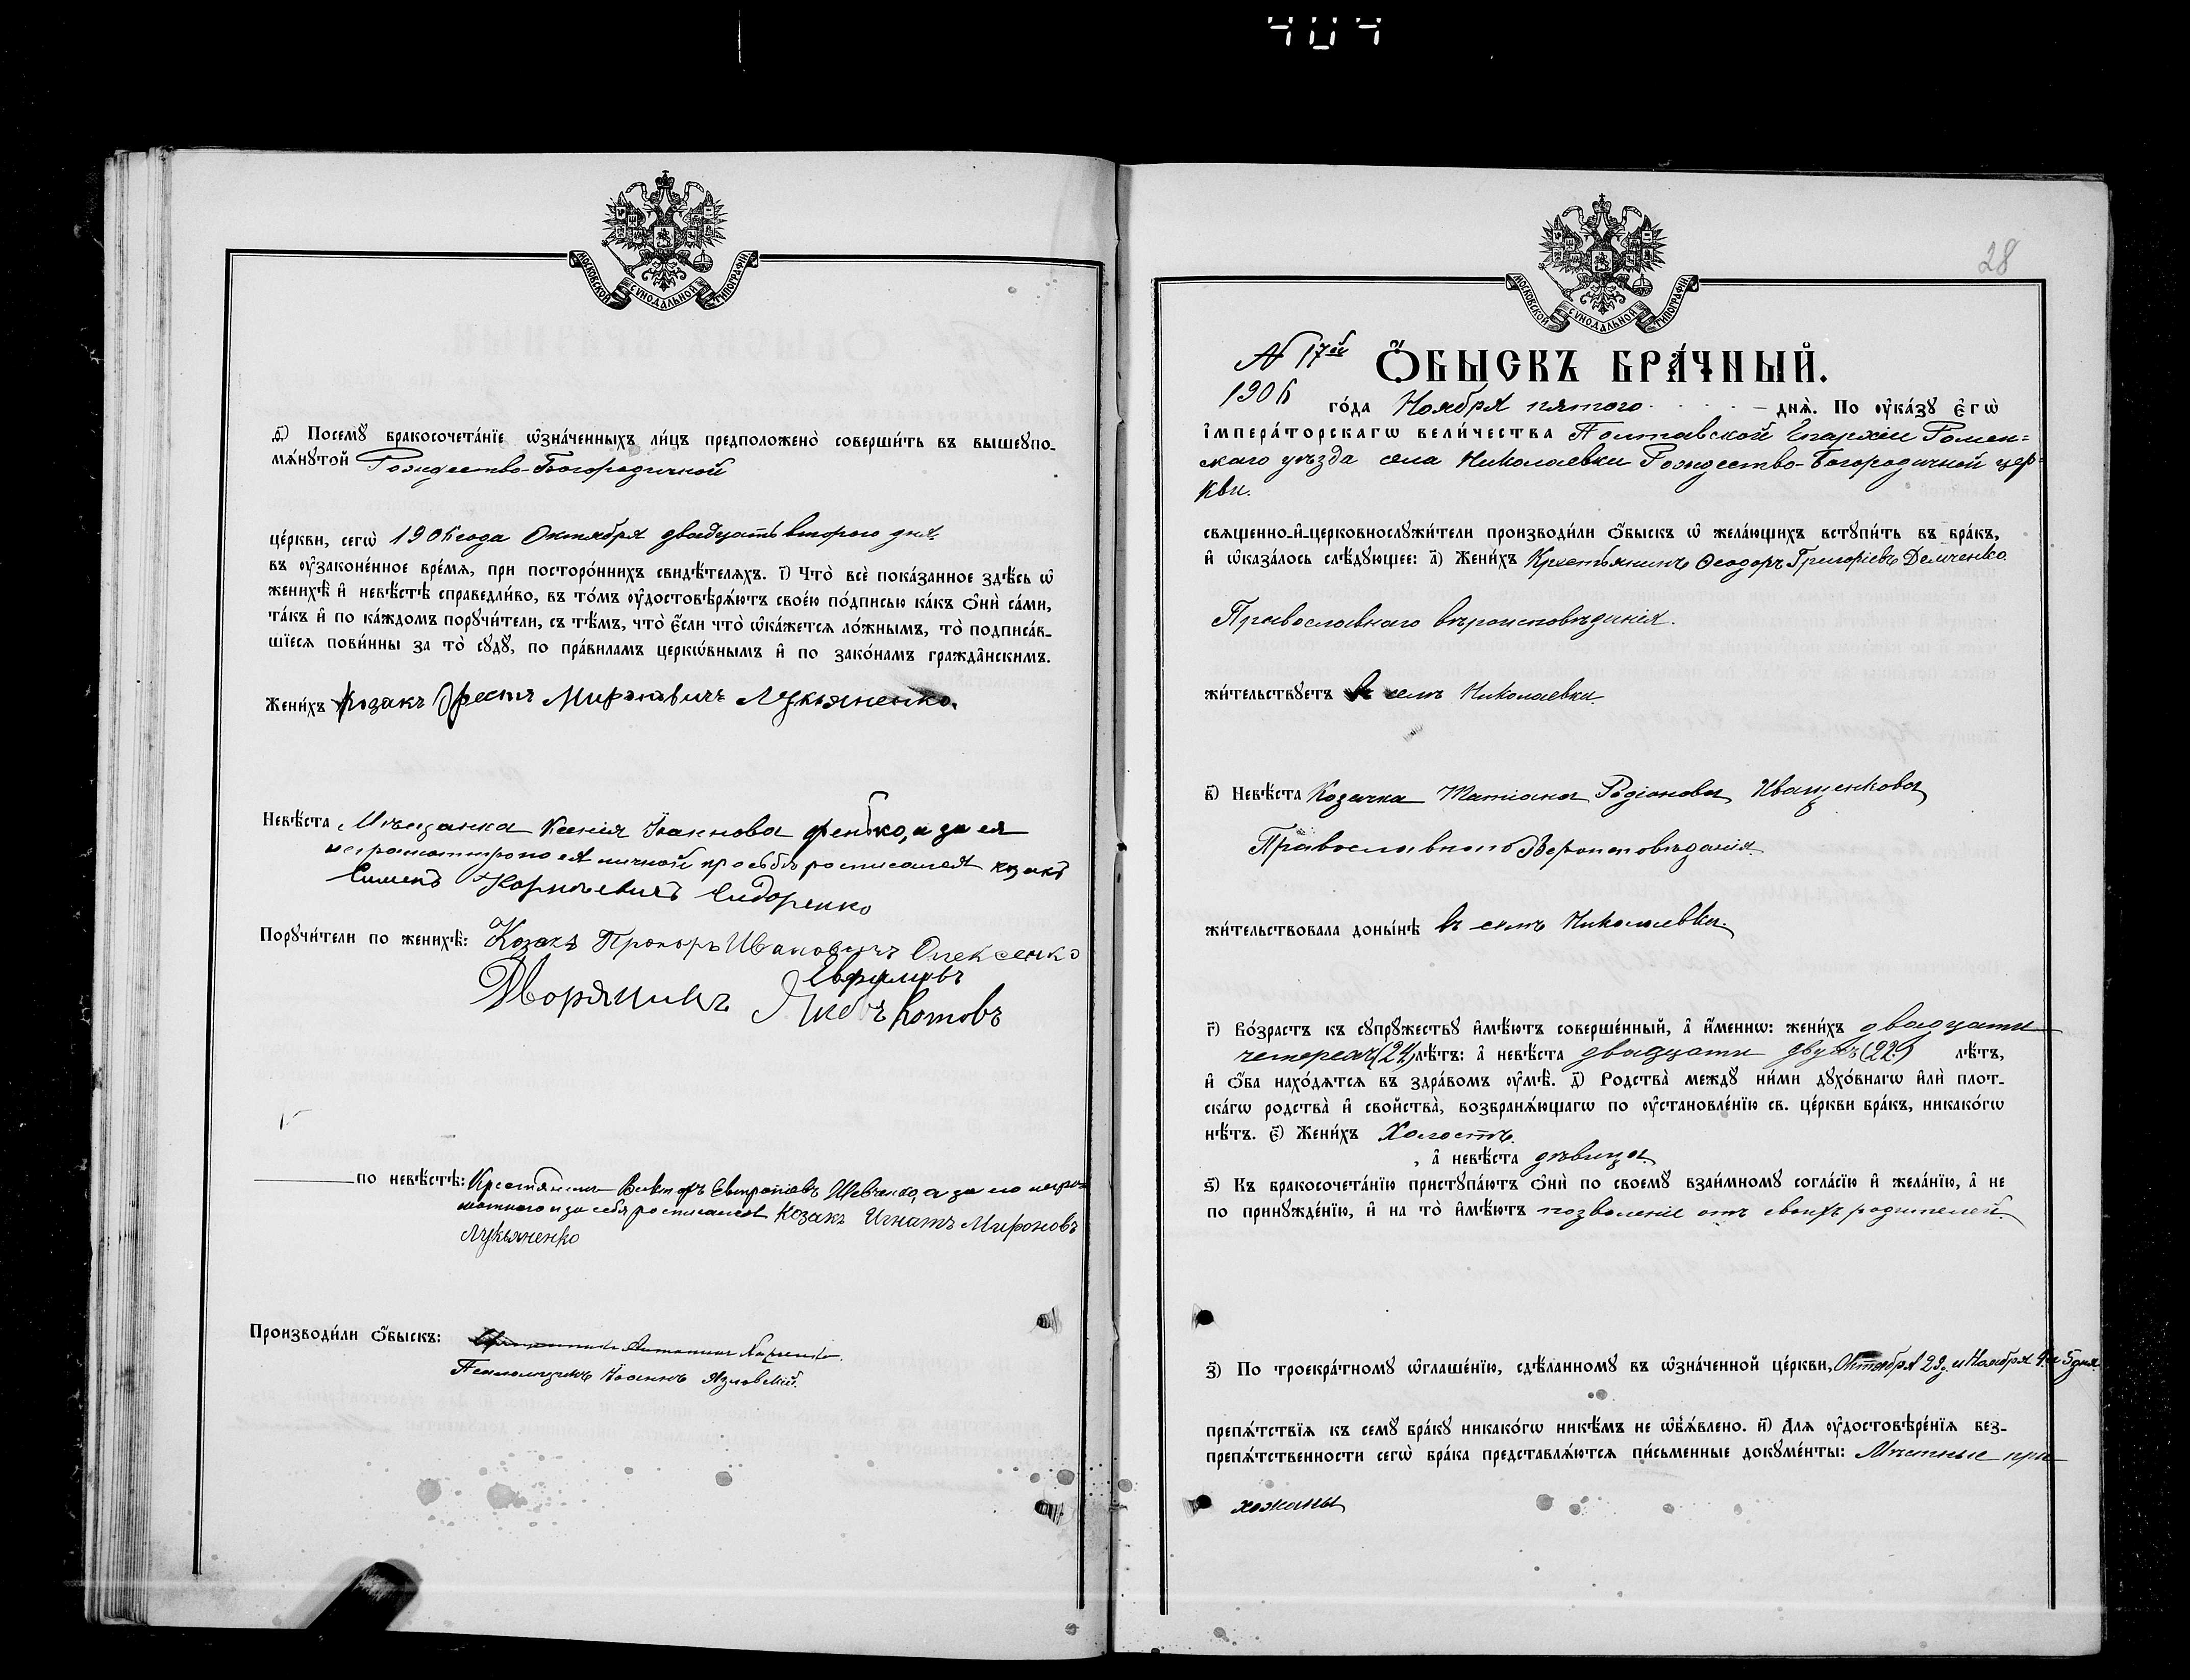 404
МОСКОВСКОЙ СѴНОДАЛЬНОЙ ТИПОГРАФІИ
Посемꙋ бракосочета́нїе ѡ҆зна́ченныхъ ли́цъ предположено̀ соверши́ть въ вышеупо-
мѧ́нꙋтой Рождество-Богородичной
це́ркви, сегѡ̀ 1906 года Октября двадцать второго дня
въ ᲂу҆законе́нное вре́мѧ, при посторо́ннихъ свидѣ́телѧхъ. і҃) Что̀ всѐ пока́занное здѣ́сь ѡ҆
женихѣ̀ и҆ невѣ́стѣ справедли́во, въ то́мъ ᲂу҆достовѣрѧ́ютъ свое́ю по́дписью ка́къ ѻ҆нѝ са́ми,
та́къ и҆ по ка́ждомъ порꙋчи́тели, съ тѣ́мъ, что̀ є҆́сли что̀ ѡ҆ка́жетсѧ ло́жнымъ, то̀ подписа́в-
шїесѧ пови́нны за то̀ сꙋдꙋ̀, по пра́виламъ церкѡ́внымъ и҆ по зако́намъ гражда̂нскимъ.
Жени́хъ Козакъ Орестъ Мироновичъ Лукьяненко.
Невѣ́ста Мѣщанка Ксенія Іоакнова а за ея
личной просьбѣ росписался козакъ
Семенъ Корнѣевичъ Сидоренко
Порꙋчи́тели по женихѣ̀: Козакъ Прокоръ Ивановичъ Олексенко
Дворянинъ Яковъ Котовъ
по невѣ́стѣ: Крестянинъ Викторъ Евтропіевъ Шевченко, а за него негра-
мотного и за себя росписался Козакъ Игнатъ Мироновъ
Лукьяненко
Производи́ли ѻ҆́быскъ:
Псаломщикъ Іоаннъ Язловскій.
28
МОСКОВСКОЙ СѴНОДАЛЬНОЙ ТИПОГРАФІИ
N 17ый
Ѻ҆́БЫСКЪ БРА́ЧНЫЙ.
1906 го́да Ноября пятого днѧ̀. По ᲂу҆ка́зꙋ Є҆гѡ̀
І҆мпера́торскагѡ Вели́чества Полтавской Епархіи Ромен=
скаго уѣзда села Николаевки Рождество-Богородичной цер=
кви.
свѧщенно-и҆-церковнослꙋжи́тели производи́ли ѻ҆́быскъ ѡ҆ жела́ющихъ вступи́ть въ бра́къ,
и҆ ѡ҆каза́лось слѣ́дꙋющее: а҃) Жени́хъ Крестьянинъ Ѳеодоръ Григоріевъ Демченко
Православнаго вѣроисповѣданія.
жи́тельствꙋетъ въ селѣ Николаевки.
в҃) Невѣ́ста Козачка Татіана Родіонова Иващенкова
Православного Вѣроисповѣданія.
жи́тельствовала доны́нѣ въ селѣ Николаевки.
г҃) Во́зрастъ къ сꙋпрꙋ́жествꙋ и҆мѣ́ютъ соверше́нный, а҆ и҆́меннѡ: жени́хъ двадцати
четерехъ (24) лѣ́тъ: а҆ невѣ́ста двадцати двухъ (22) лѣ́тъ,
и҆ ѻ҆́ба нахо́дѧтсѧ въ здра́вомъ ᲂу҆мѣ̀. д҃) Родства̀ междꙋ̀ ни́ми дꙋхо́внагѡ и҆лѝ плот-
ска́гѡ родства̀ и҆ сво́йства̀, возбранѧ́ющагѡ по ᲂу҆становле́нїю св. це́ркви бра́къ, никако́гѡ
нѣ́тъ. є҃) Жени́хъ Холостъ.
, а҆ невѣ́ста дѣвица.
ѕ҃) Къ бракосочета́нїю пристꙋпа́ютъ ѻ҆нѝ по своемꙋ̀ взаи́мномꙋ согла́сїю и҆ жела́нїю, а҆ не
по принꙋжде́нїю, и҆ на то̀ и҆мѣ́ютъ позволеніе отъ своихъ родителей.
з҃) По троекра́тномꙋ ѡ҆глаше́нїю, сдѣ́ланномꙋ въ ѡ҆зна́ченной це́ркви, Октября 29, и Ноября 4 и 5 дня
препѧ́тствїѧ къ семꙋ̀ бра́кꙋ никако́гѡ никѣ́мъ не ѡ҆б̾ѧ́влено. и҃) Длѧ ᲂу҆достовѣре́нїѧ без-
препѧ́тственности сегѡ̀ бра́ка представлѧ́ютсѧ пи́сьменные докꙋме́нты: Мѣстные при-
хожаны